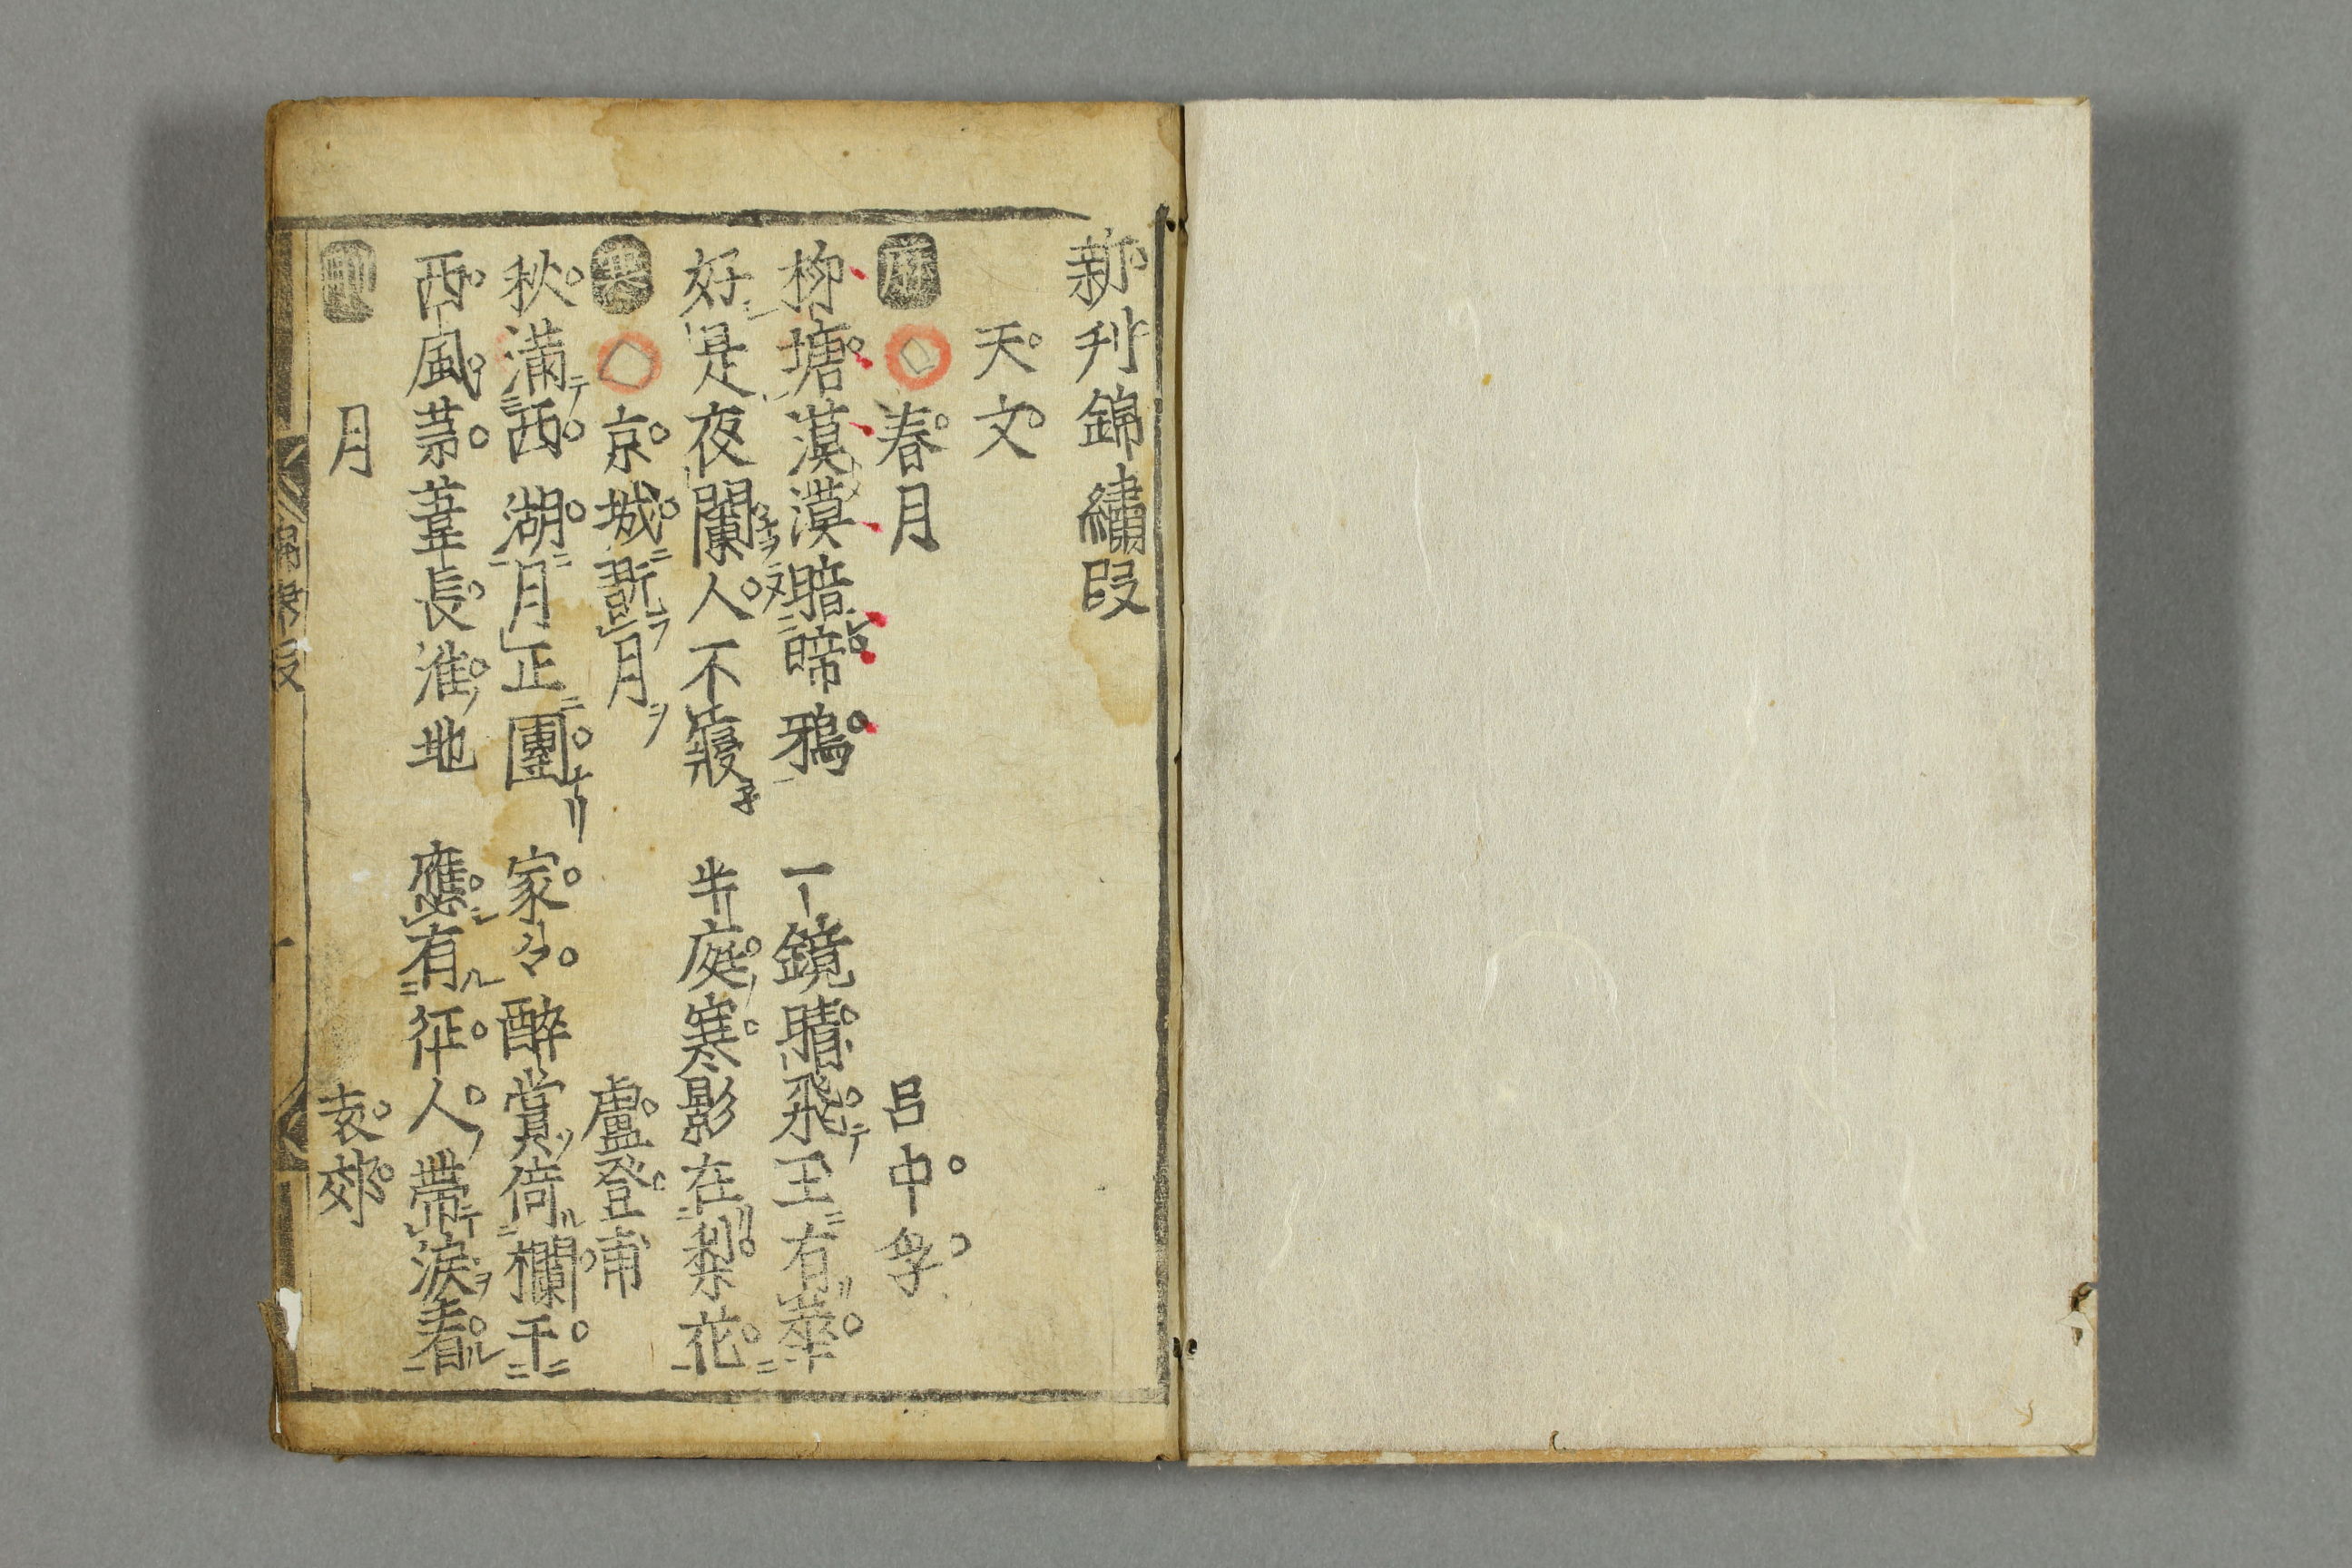 新刋錦繡段
天文
麻 春月 呂中孚
栁塘漠漠暗啼鴉 一鏡晴飛玉有華
好是夜闌人不寢 半庭寒影在梨花
寒 京城翫月 盧登甫
秋滿西湖月正團 家々醉賞倚欄干
西風葦長淮地 應有征人帶淚看
月 袁郊